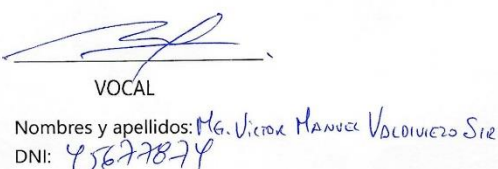 VOCAL
Nombres y apellidos: MG. VICTOR MANUEL VALDIVIEZO SIR
DNI: 45677874